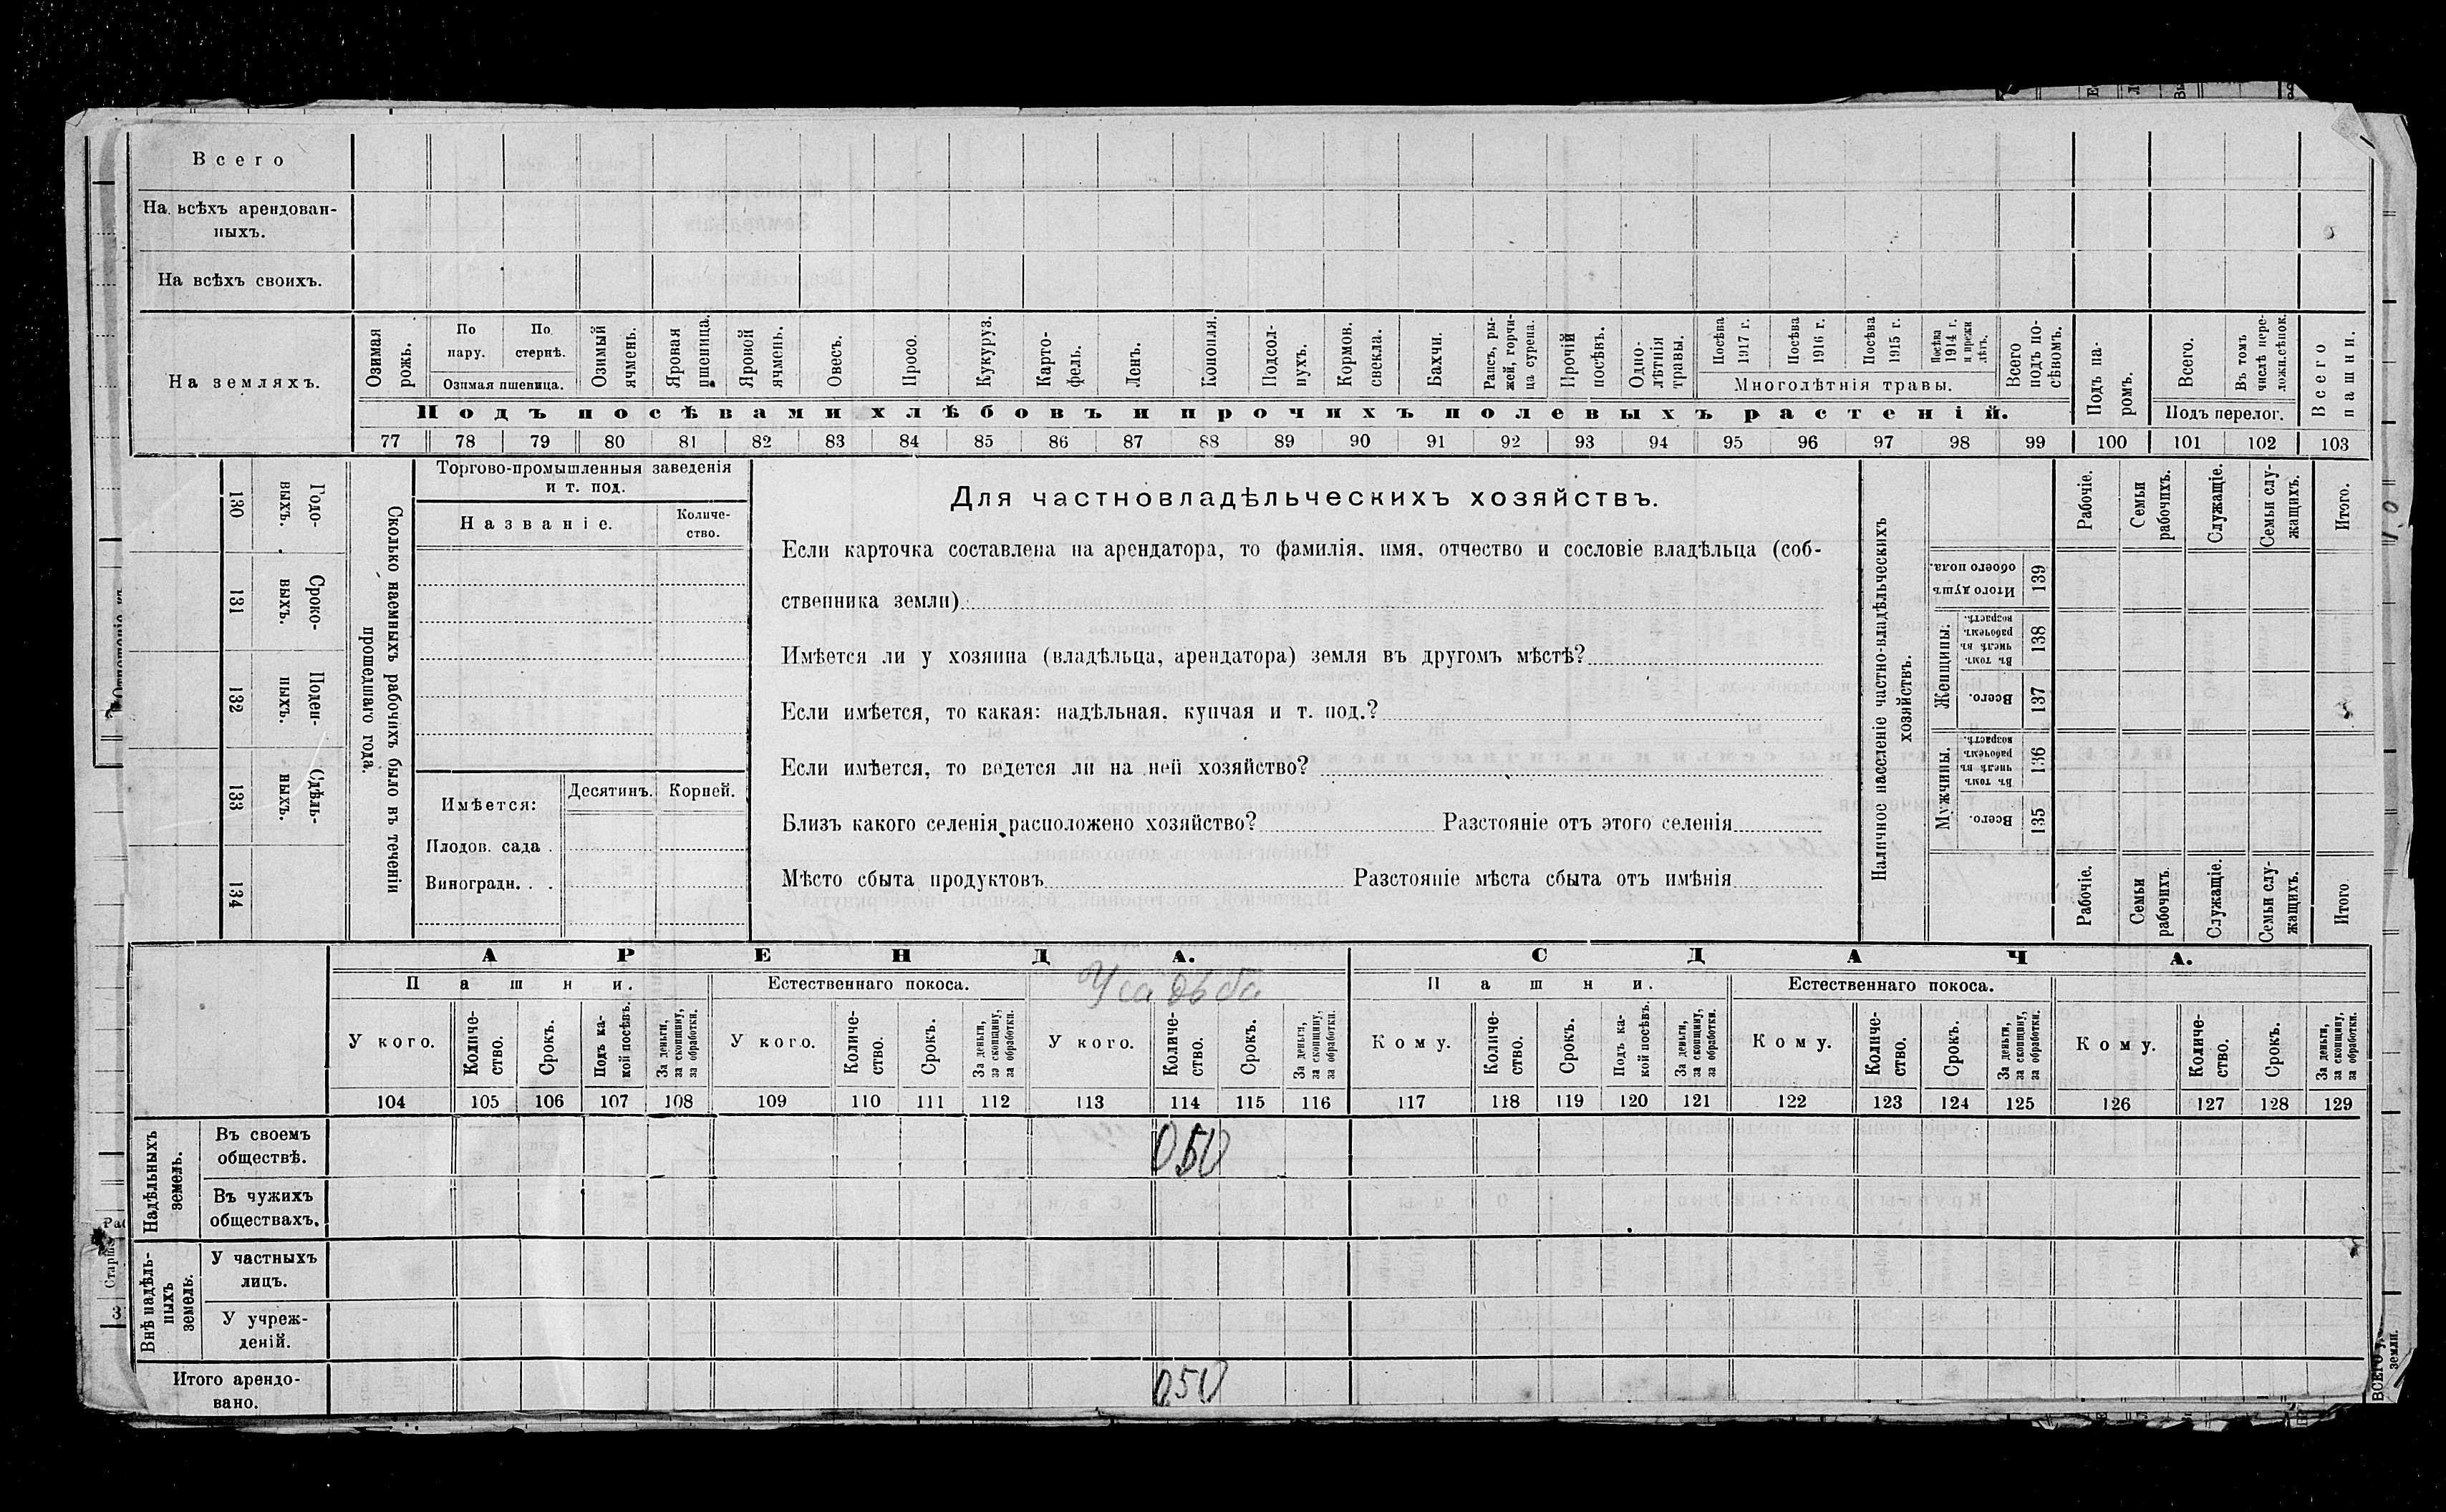 Всего
На всѣхъ арендован-
ныхъ.
На всѣхъ своихъ.
На земляхъ.
Озимая рожь.
По пару.
По стернѣ.
Озимая пшеница.
Озимый ячмень.
Яровая пшеница.
Яровой ячмень.
Овесъ.
Просо.
Кукуруз.
Карто-
фель.
Ленъ.
Конопля.
Подсол-
нухъ.
Кормов. свекла.
Бахчи.
Рапсъ, ры-
жей, горчи-
ца сурепа.
Прочій посѣвъ.
Одно-
лѣтнія
травы.
Посѣва 1917 г.
Посѣва 1916 г.
Посѣва 1915 г.
Посѣва 1914 г. и прежн лѣтъ.
Многолѣтнія травы.
Всего подъ по-
сѣвомъ.
Подъ посѣвами хлѣбовъ и прочихъ полевыхъ растеній.
Подъ па-
ромъ.
Всего.
Въ томъ числѣ пере-
ложн.сѣнок.
Подъ перелог.
Всего пашни.
77 78 79 80 81 82 83 84 85 86 87 88 89 90 91 92 93 94 95 96 97 98 99 100 101 102 103
130 Годо-
выхъ.
131 Сроко-
выхъ.
132 Поден-
ныхъ.
133 Сдѣль-
ныхъ.
134
Сколько наемныхъ рабочихъ было въ теченіи
прошедшаго года.
Торгово-промышленныя заведенія
и т. под.
Названіе.
Количе-
ство.
Имѣется:
Десятинъ.
Корней.
Плодов. сада .
Виноградн. . .
Для частновладѣльческихъ хозяйствъ.
Если карточка составлена на арендатора, то фамилія, имя, отчество и сословіе владѣльца (соб-
ственника земли)
Имѣется ли у хозяина (владѣльца, арендатора) земля въ другомъ мѣстѣ?
Если имѣется, то какая: надѣльная, купчая и т. под.?
Если имѣется, то ведется ли на ней хозяйство?
Близъ какого селенія расположено хозяйство? Разстояніе отъ этого селенія
Мѣсто сбыта продуктовъ Разстояніе мѣста сбыта отъ имѣнія
Наличное населеніе частно-владѣльческихъ
хозяйствъ.
Рабочіе.
Семьи рабочихъ.
Служащіе.
Семьи слу-
жащихъ.
Итого.
Итого душъ обоего пола. 139
Женщины.
Въ томъ числѣ въ рабочемъ возрастѣ. 138
Всего. 137
Мужчины.
Въ томъ числѣ въ рабочемъ возрастѣ. 136
Всего. 135
Рабочіе.
Семьи рабочихъ.
Служащіе.
Семьи слу-
жащихъ.
Итого
АРЕНДА.
СДАЧА.
Пашни.
Естественнаго покоса.
Усадьба
Пашни.
Естественнаго покоса.
У кого.
Количе-
ство.
Срокъ.
Подъ ка-
кой посѣвъ.
За деньги, за скопщину, за обработки.
У кого.
Количе-
ство.
Срокъ.
За деньги, за скопщину, за обработки.
У кого.
Количе-
ство.
Срокъ.
За деньги, за скопщину, за обработки.
Кому.
Количе-
ство.
Срокъ.
Подъ ка-
кой посѣвъ.
За деньги, за скопщину, за обработки.
Кому.
Количе-
ство.
Срокъ.
За деньги, за скопщину, за обработки.
Кому.
Количе-
ство.
Срокъ.
За деньги, за скопщину, за обработки.
104 105 106 107 108 109 110 111 112 113 114 115 116 117 118 119 120 121 122 123 124 125 126 127 128 129
Надѣльныхъ земель.
Въ своемъ
обществѣ.
050
Въ чужихъ
обществахъ.
Внѣ надѣль-
ныхъ
земель.
У частныхъ
лицъ.
У учреж-
деній.
Итого арендо-
вано.
050